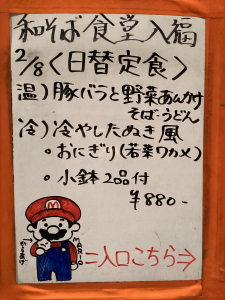 和そば食堂入福
2/8〈日替定食〉
温）豚バラと野菜あんかけ
そば・うどん
冷）冷やしたぬき風
・おにぎり（若菜ワカメ）
・小鉢2品付
¥880-
からあげ
MARIO
=入口こちら⇒